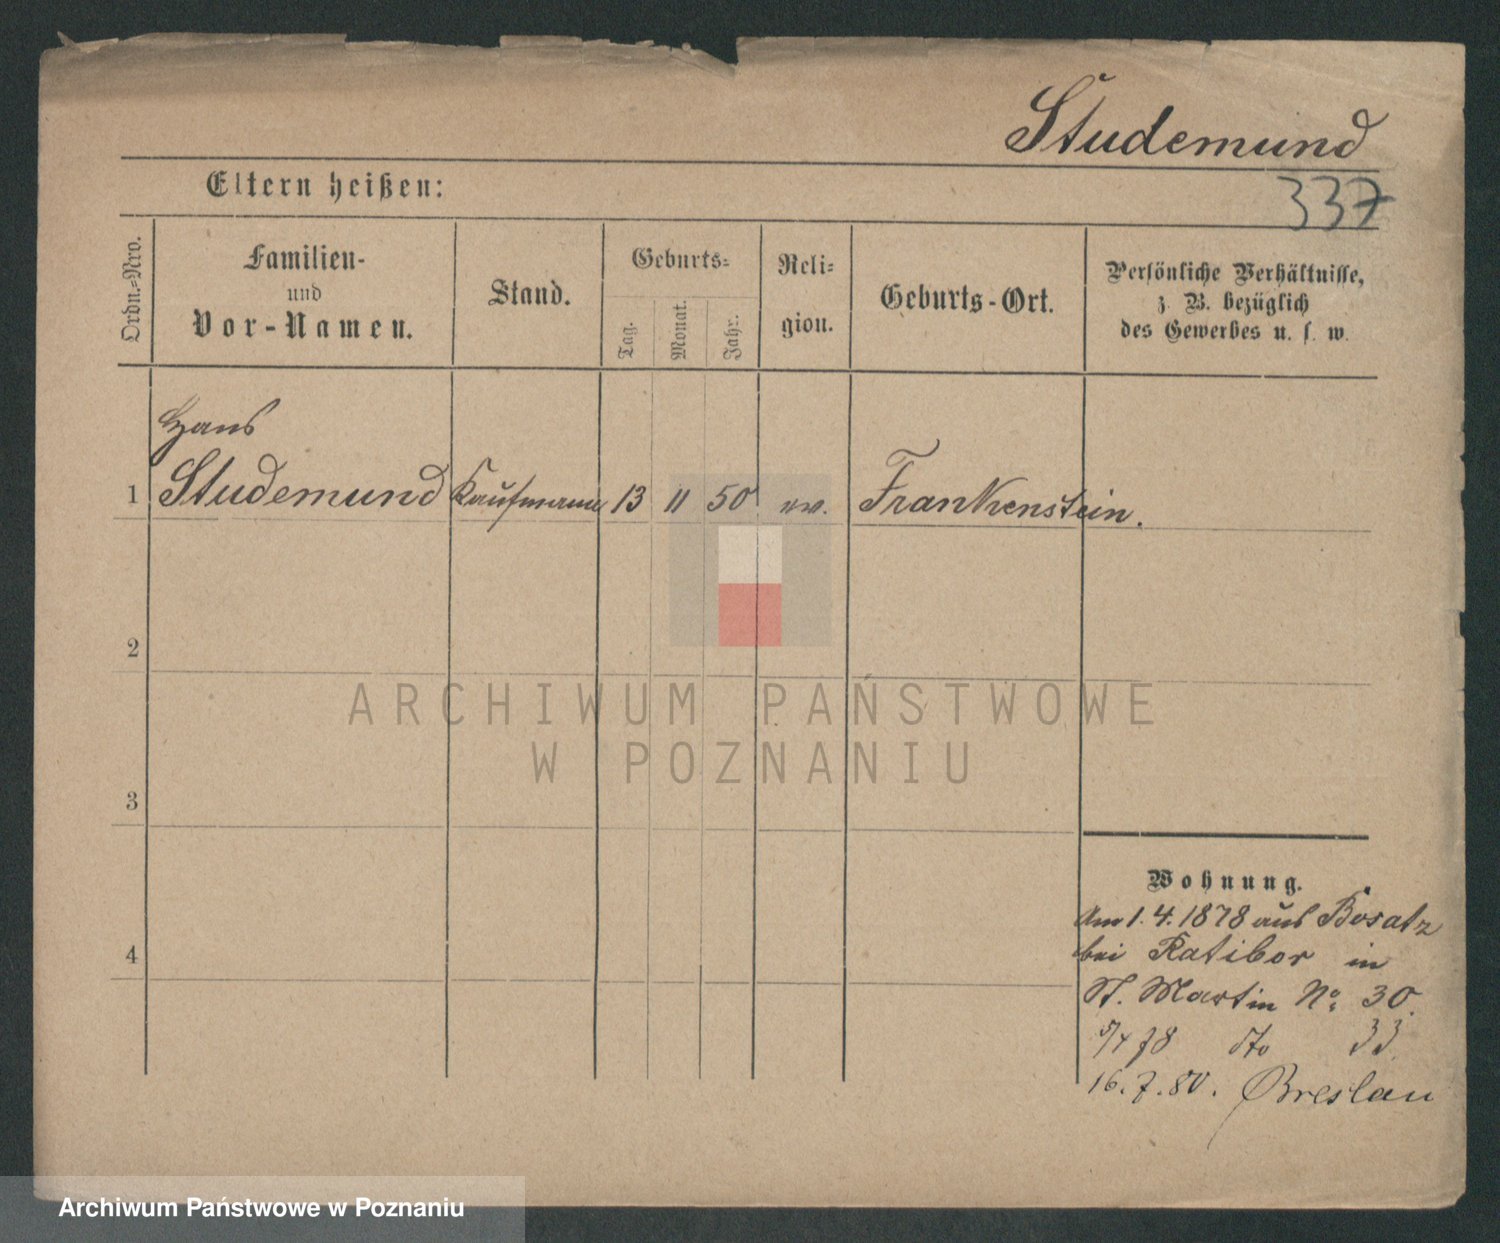 Studemund
Eltern heißen:
337
Ordn.=Nro.
Familien-
und
Vor-Namen.
Stand.
Geburts=
Tag.
Monat.
Jahr.
Reli=
gion.
Geburts-Ort.
Persönliche Verhältnisse,
z. B. bezüglich
des Gewerbes u. s. w.
Hans
1 Studemund Kaufmann 13 11 50 ev. Frankenstein.
2
ARCHIWUM PAŃSTWOWE
W POZNANIU
3
Wohnung.
Am 1.4.1878 aus Bosatz
4
bei Ratibor in
St. Martin No: 30.
78 dto 33.
16.7.80. Breslau
Archiwum Państwowe w Poznaniu